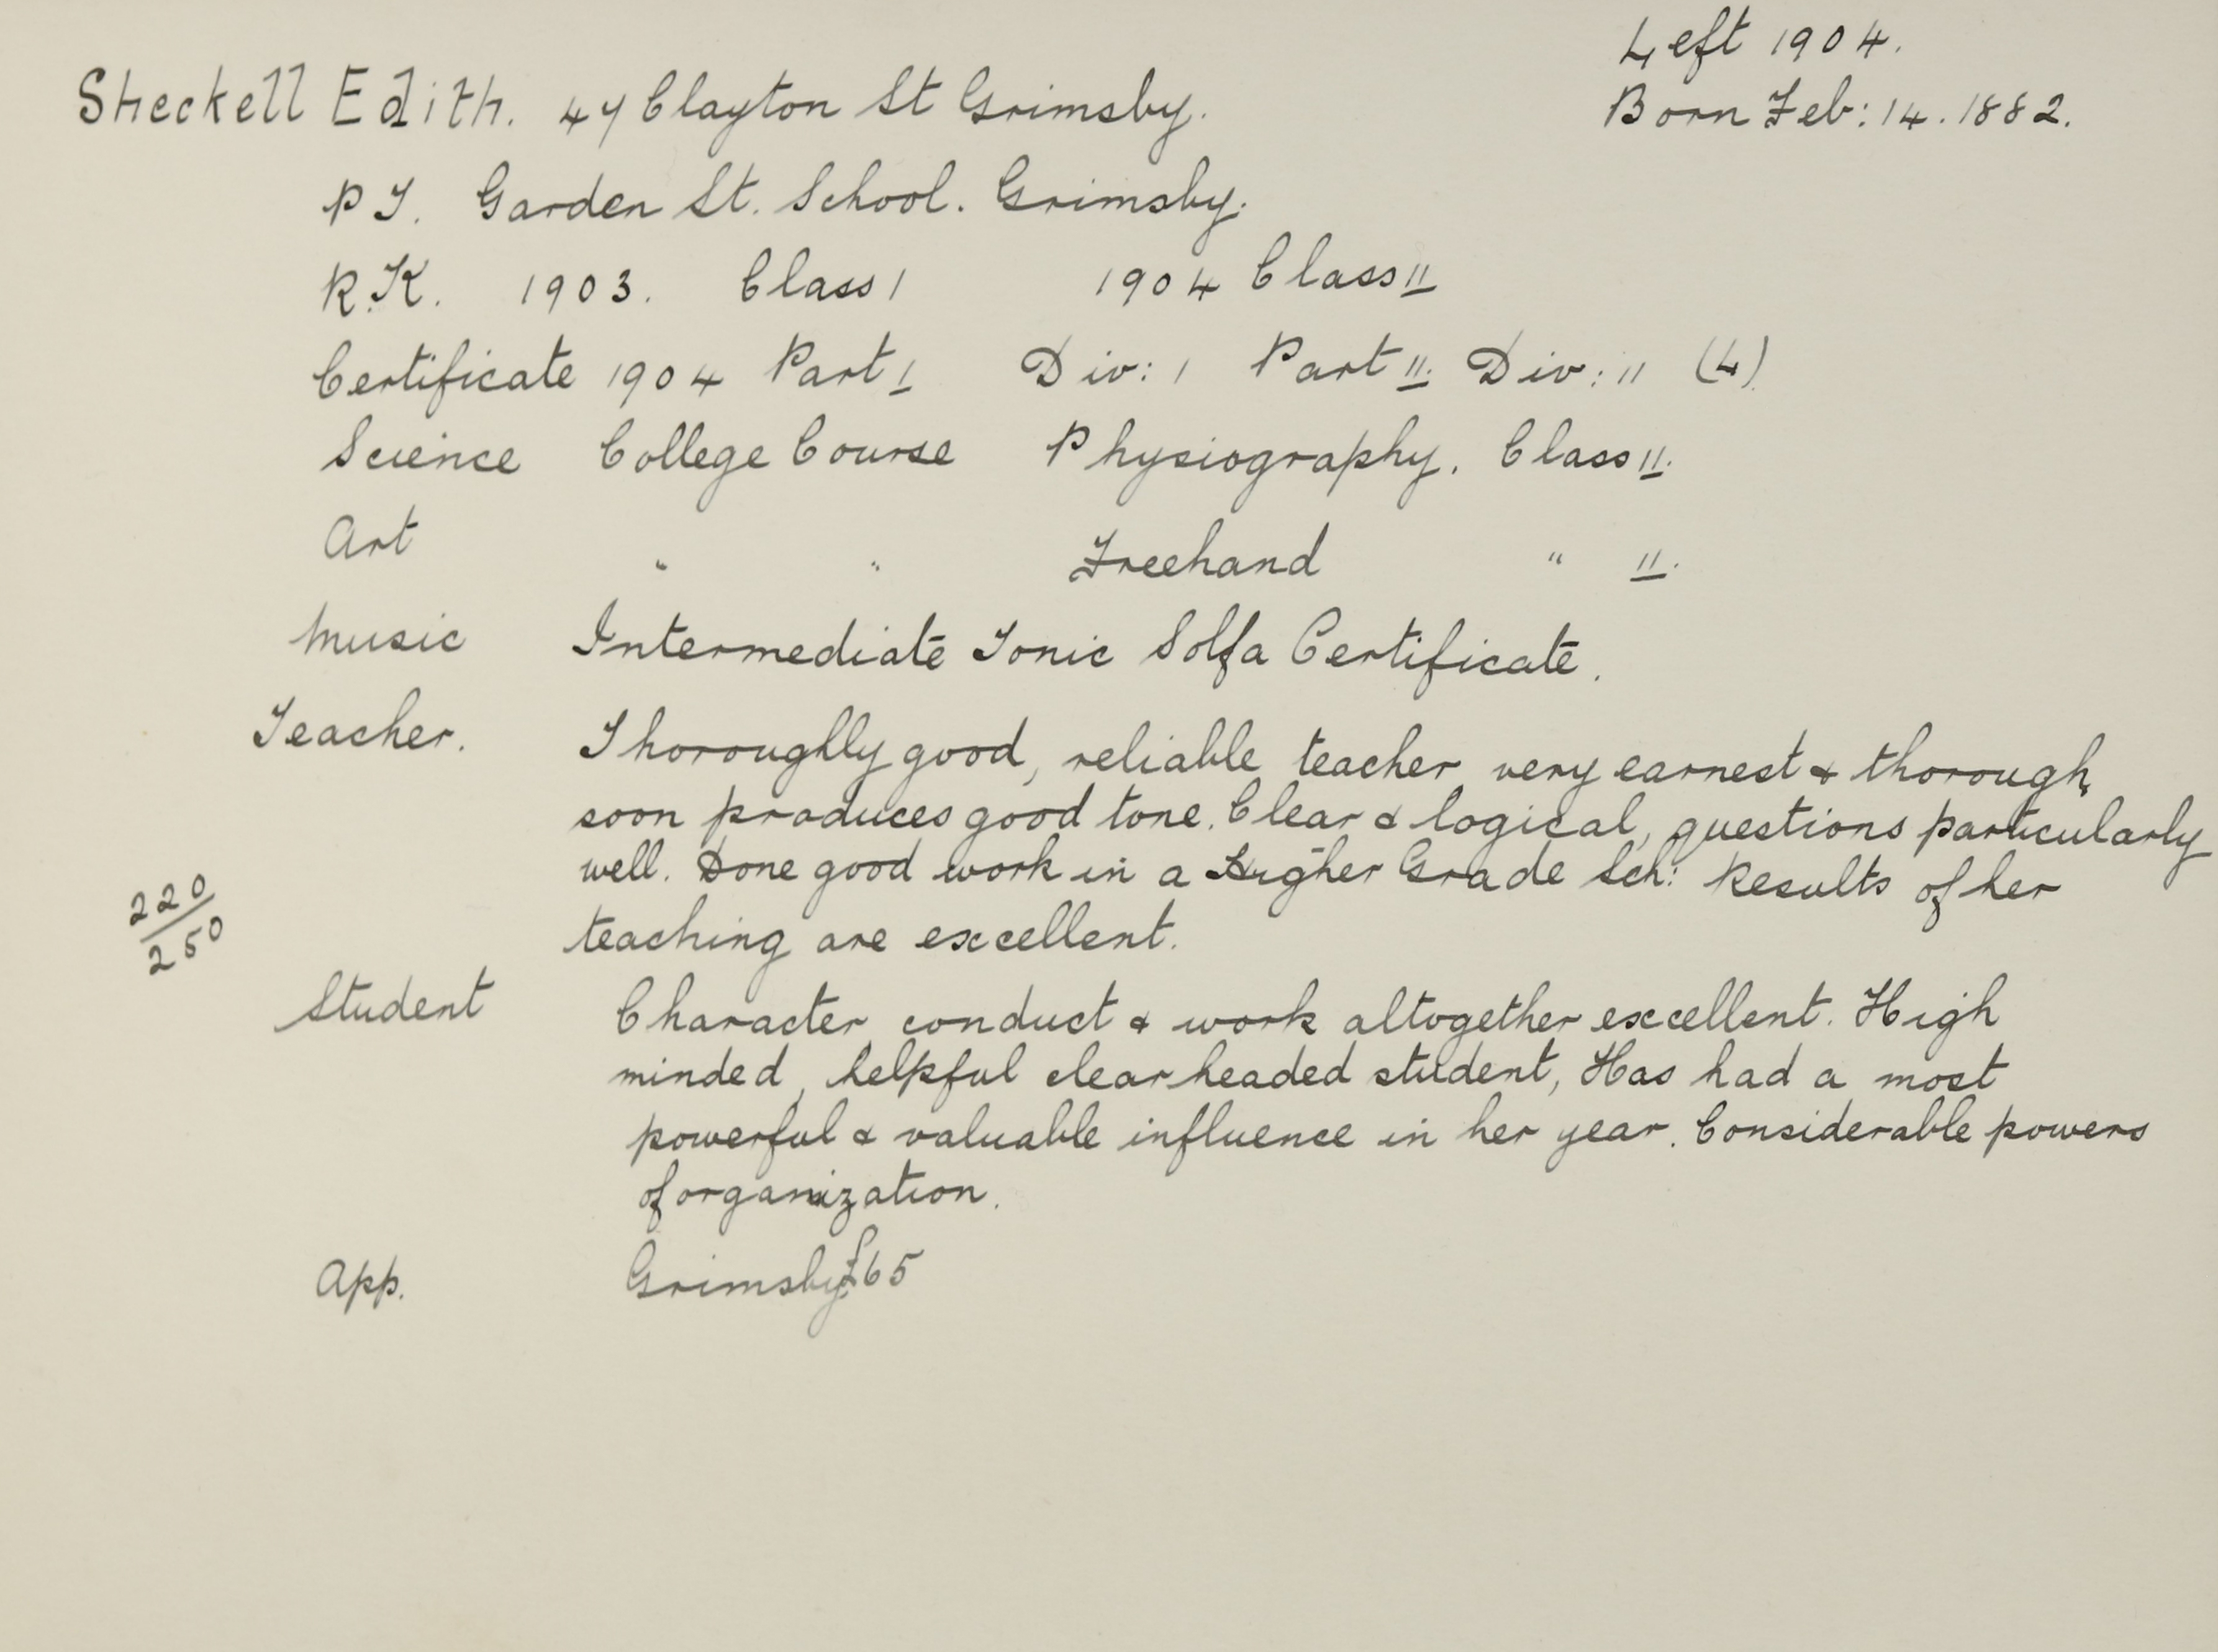 Left 1904.
Sheckell Edith. 47 Clayton St Grimsby.
Born Feb: 14. 1882.
P T. Garden St. School. Grimsby.
R.K. 1903. Class I 1904 Class II
Certificate 1904 Part I Div: I Part II. Div: II (4).
Science College Course Physiography. Class II.
Art " " Freehand " II.
Music Intermediate Tonic Solfa Certificate.
Teacher. Thoroughly good, reliable teacher very earnest & thorough,
soon produces good tone. Clear & logical, questions particularly
well. Done good work in a Higher Grade Sch: Results of her
teaching are excellent.
220
250
Student Character conduct & work altogether excellent. High
minded, helpful clear headed student, Has had a most
powerful & valuable influence in her year. Considerable powers
of organization.
App. Grimsby £65